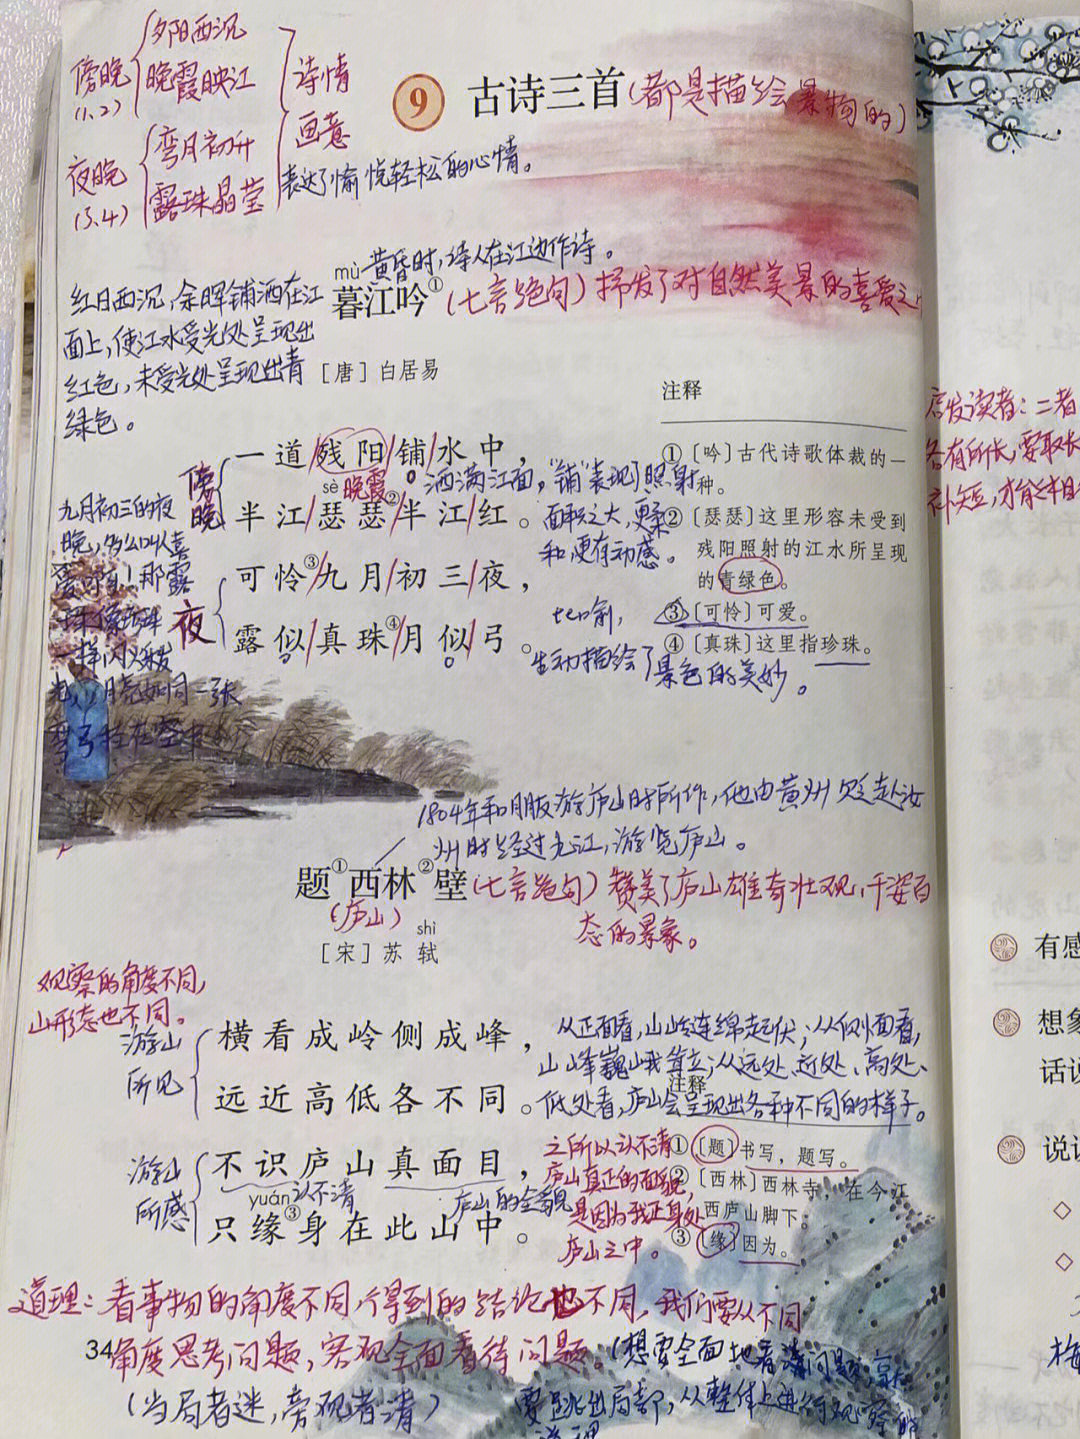 傍晚
(1、2)
夕阳西沉
晚霞映江
夜晚
(3、4)
弯月初升
露珠晶莹
诗情
画意
表达了愉悦轻松的心情。
9 古诗三首(都是描绘景物的)
黄昏时,诗人在江边作诗。
mù
暮江吟①(七言绝句)抒发了对自然美景的喜爱之
[唐] 白居易
红日西沉,余晖铺洒在江
面上,使江水受光处呈现出
红色,未受光处呈现出青
绿色。
傍晚
一道残阳铺水中,
sè 晚霞
半江瑟瑟②半江红。
洒满江面,“铺”表现了照射
面积之大,更柔
和,更有动感。
九月初三的夜
晚,多么叫人喜
那露
一样闪
月亮如同一张
弯弓挂在空中
夜
可怜③九月初三夜,
露似真珠④月似弓。
比喻,
生动描绘了景色的美妙。
注释
①〔吟〕古代诗歌体裁的一
种。
②〔瑟瑟〕这里形容未受到
残阳照射的江水所呈现
的青绿色。
③〔可怜〕可爱。
④〔真珠〕这里指珍珠。
1804年和朋友游庐山时所作,他由黄州贬赴汝
州时经过九江,游览庐山。
题①西林②壁(七言绝句)赞美了庐山雄奇壮观,千姿百
态的景象。
(庐山)
shì
[宋] 苏轼
观察的角度不同,
山形态也不同。
游山
所见
横看成岭侧成峰,
远近高低各不同。
从正面看,山岭连绵起伏;从侧面看,
山峰巍峨耸立;从远处、近处、高处、
低处看,庐山会呈现出各种不同的样子。
游山
所感
不识庐山真面目,
认不清
庐山的全貌
yuán
只缘③身在此山中。
之所以认不清
庐山真正的面貌,
是因为我正身处
庐山之中。
注释
①〔题〕书写,题写。
②〔西林〕西林寺,在今江
西庐山脚下。
③〔缘〕因为。
道理:看事物的角度不同,得到的结论也不同,我们要从不同
角度思考问题,客观全面看待问题。(想要全面地看清问题,
(当局者迷,旁观者清)
要跳出局部,从整体上进行观察的
道理
34
启发读者:二者
各有所长,要取长
补短,才能
有感
想象
话说
说说
梅